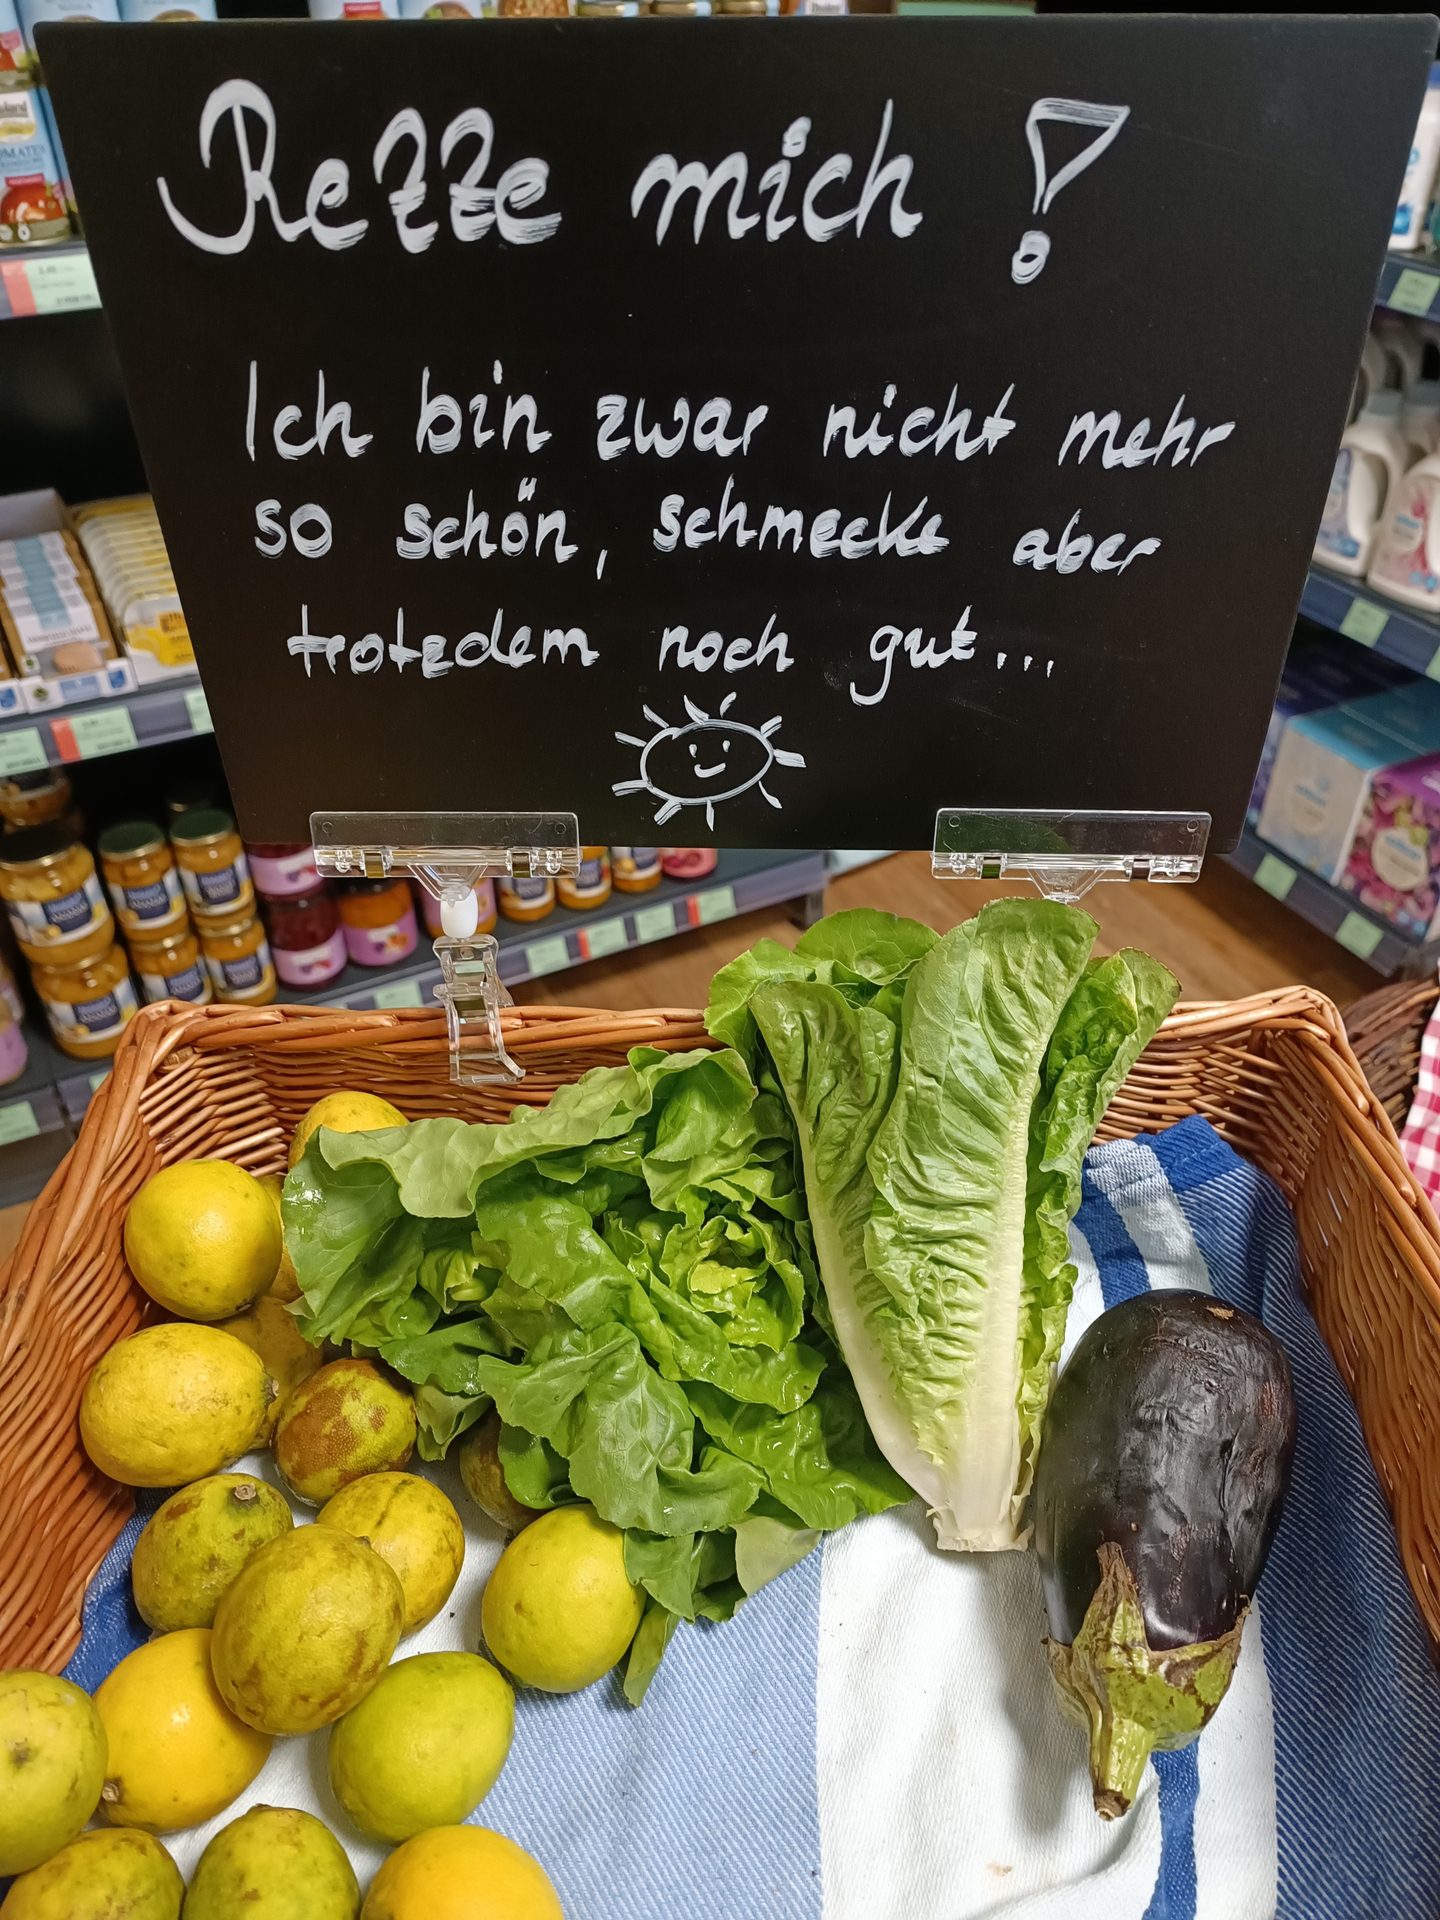 Rezze mich !
Ich bin zwar nicht mehr
so schön, schmecke aber
trotzdem noch gut...